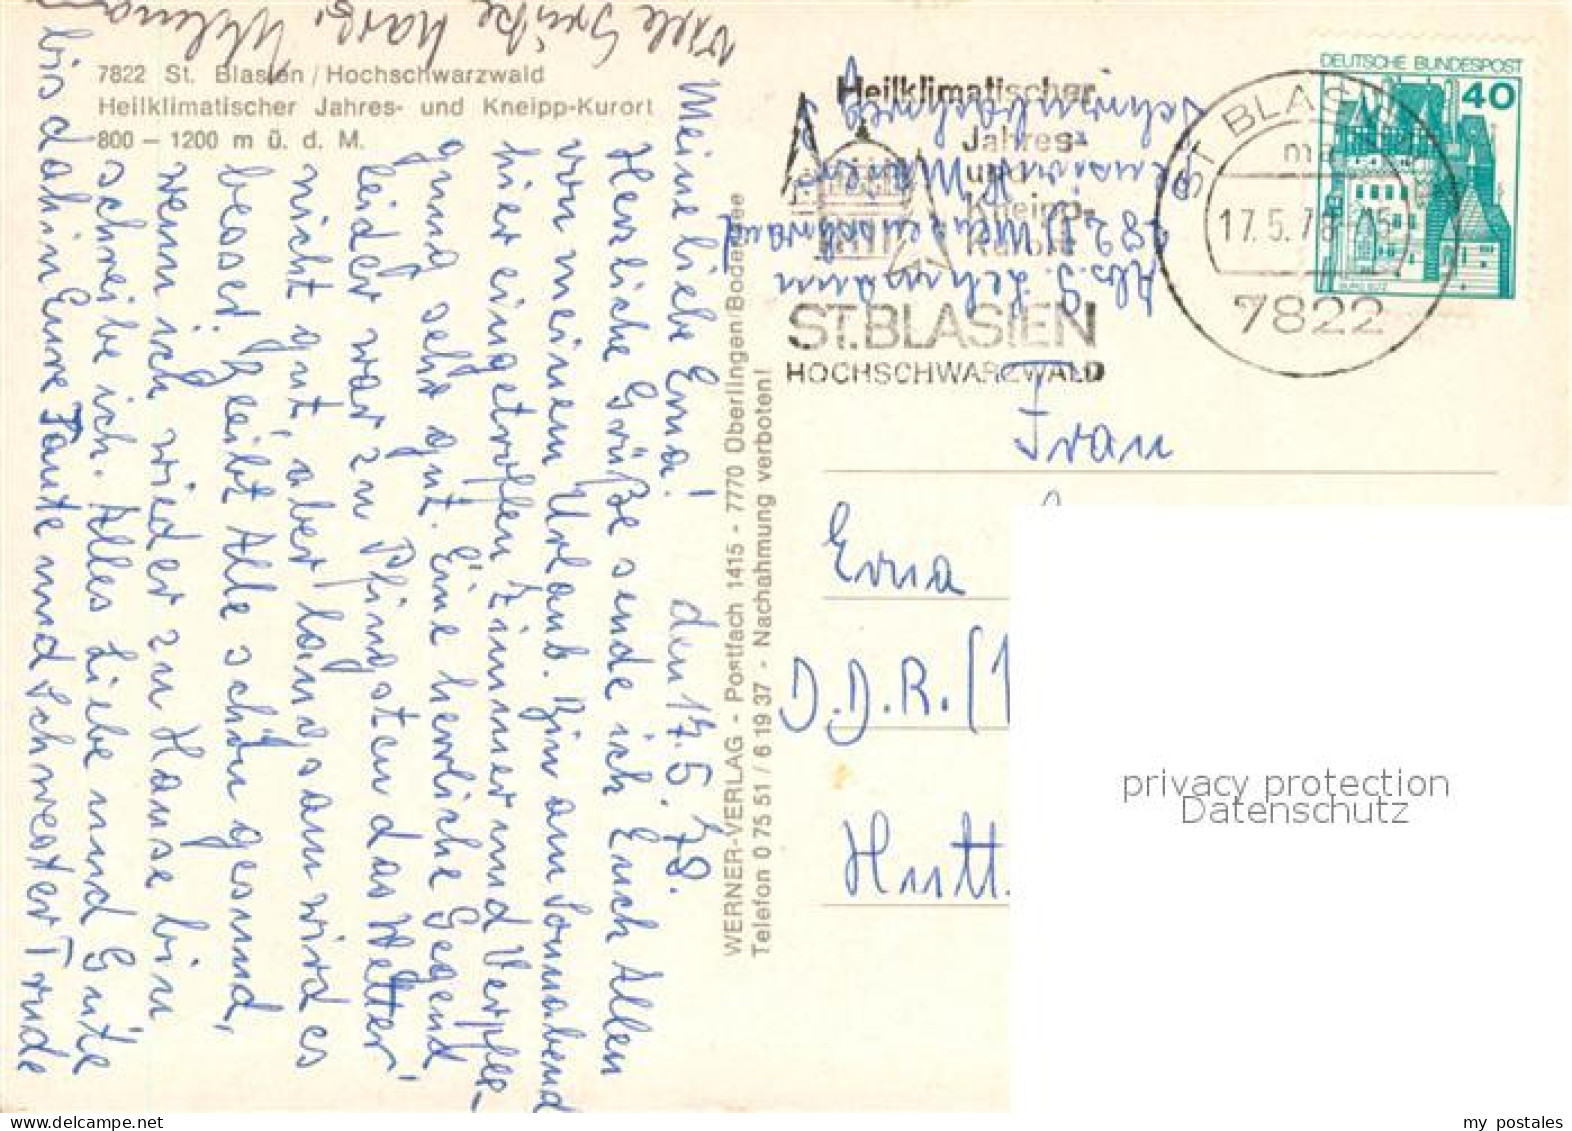 Viele Grüße
7822 St. Blasien / Hochschwarzwald
Heilklimatischer Jahres- und Kneipp-Kurort
800 – 1200 m ü. d. M.
Meine liebe Erna! den 17. 5. 78.
Herzliche Grüße sende ich Euch Allen
von meinem Urlaub. Bin am Sonnabend
hier eingetroffen Zimmer und Verpfle-
gung sehr gut. Eine herrliche Gegend
leider war zu Pfingsten das Wetter
nicht gut, aber langsam wird es
besser. Bleibt Alle schön gesund,
wenn ich wieder zu Hause bin
schreibe ich. Alles Liebe und Gute
bis dahin Eure Tante und Schwester Trude
WERNER-VERLAG - Postfach 1415 - 7770 Überlingen/Bodensee
Telefon 0 75 51 / 6 19 37 - Nachahmung verboten!
Abs. Lehmann
Pension
Heilklimatischer
Jahres-
und
Kneipp-
Kurort
ST.BLASIEN
HOCHSCHWARZWALD
ST. BLASIEN
17.5.78
7822
DEUTSCHE BUNDESPOST
40
Frau
Erna
D.D.R. (1
Hutt.
privacy protection
Datenschutz
my postales